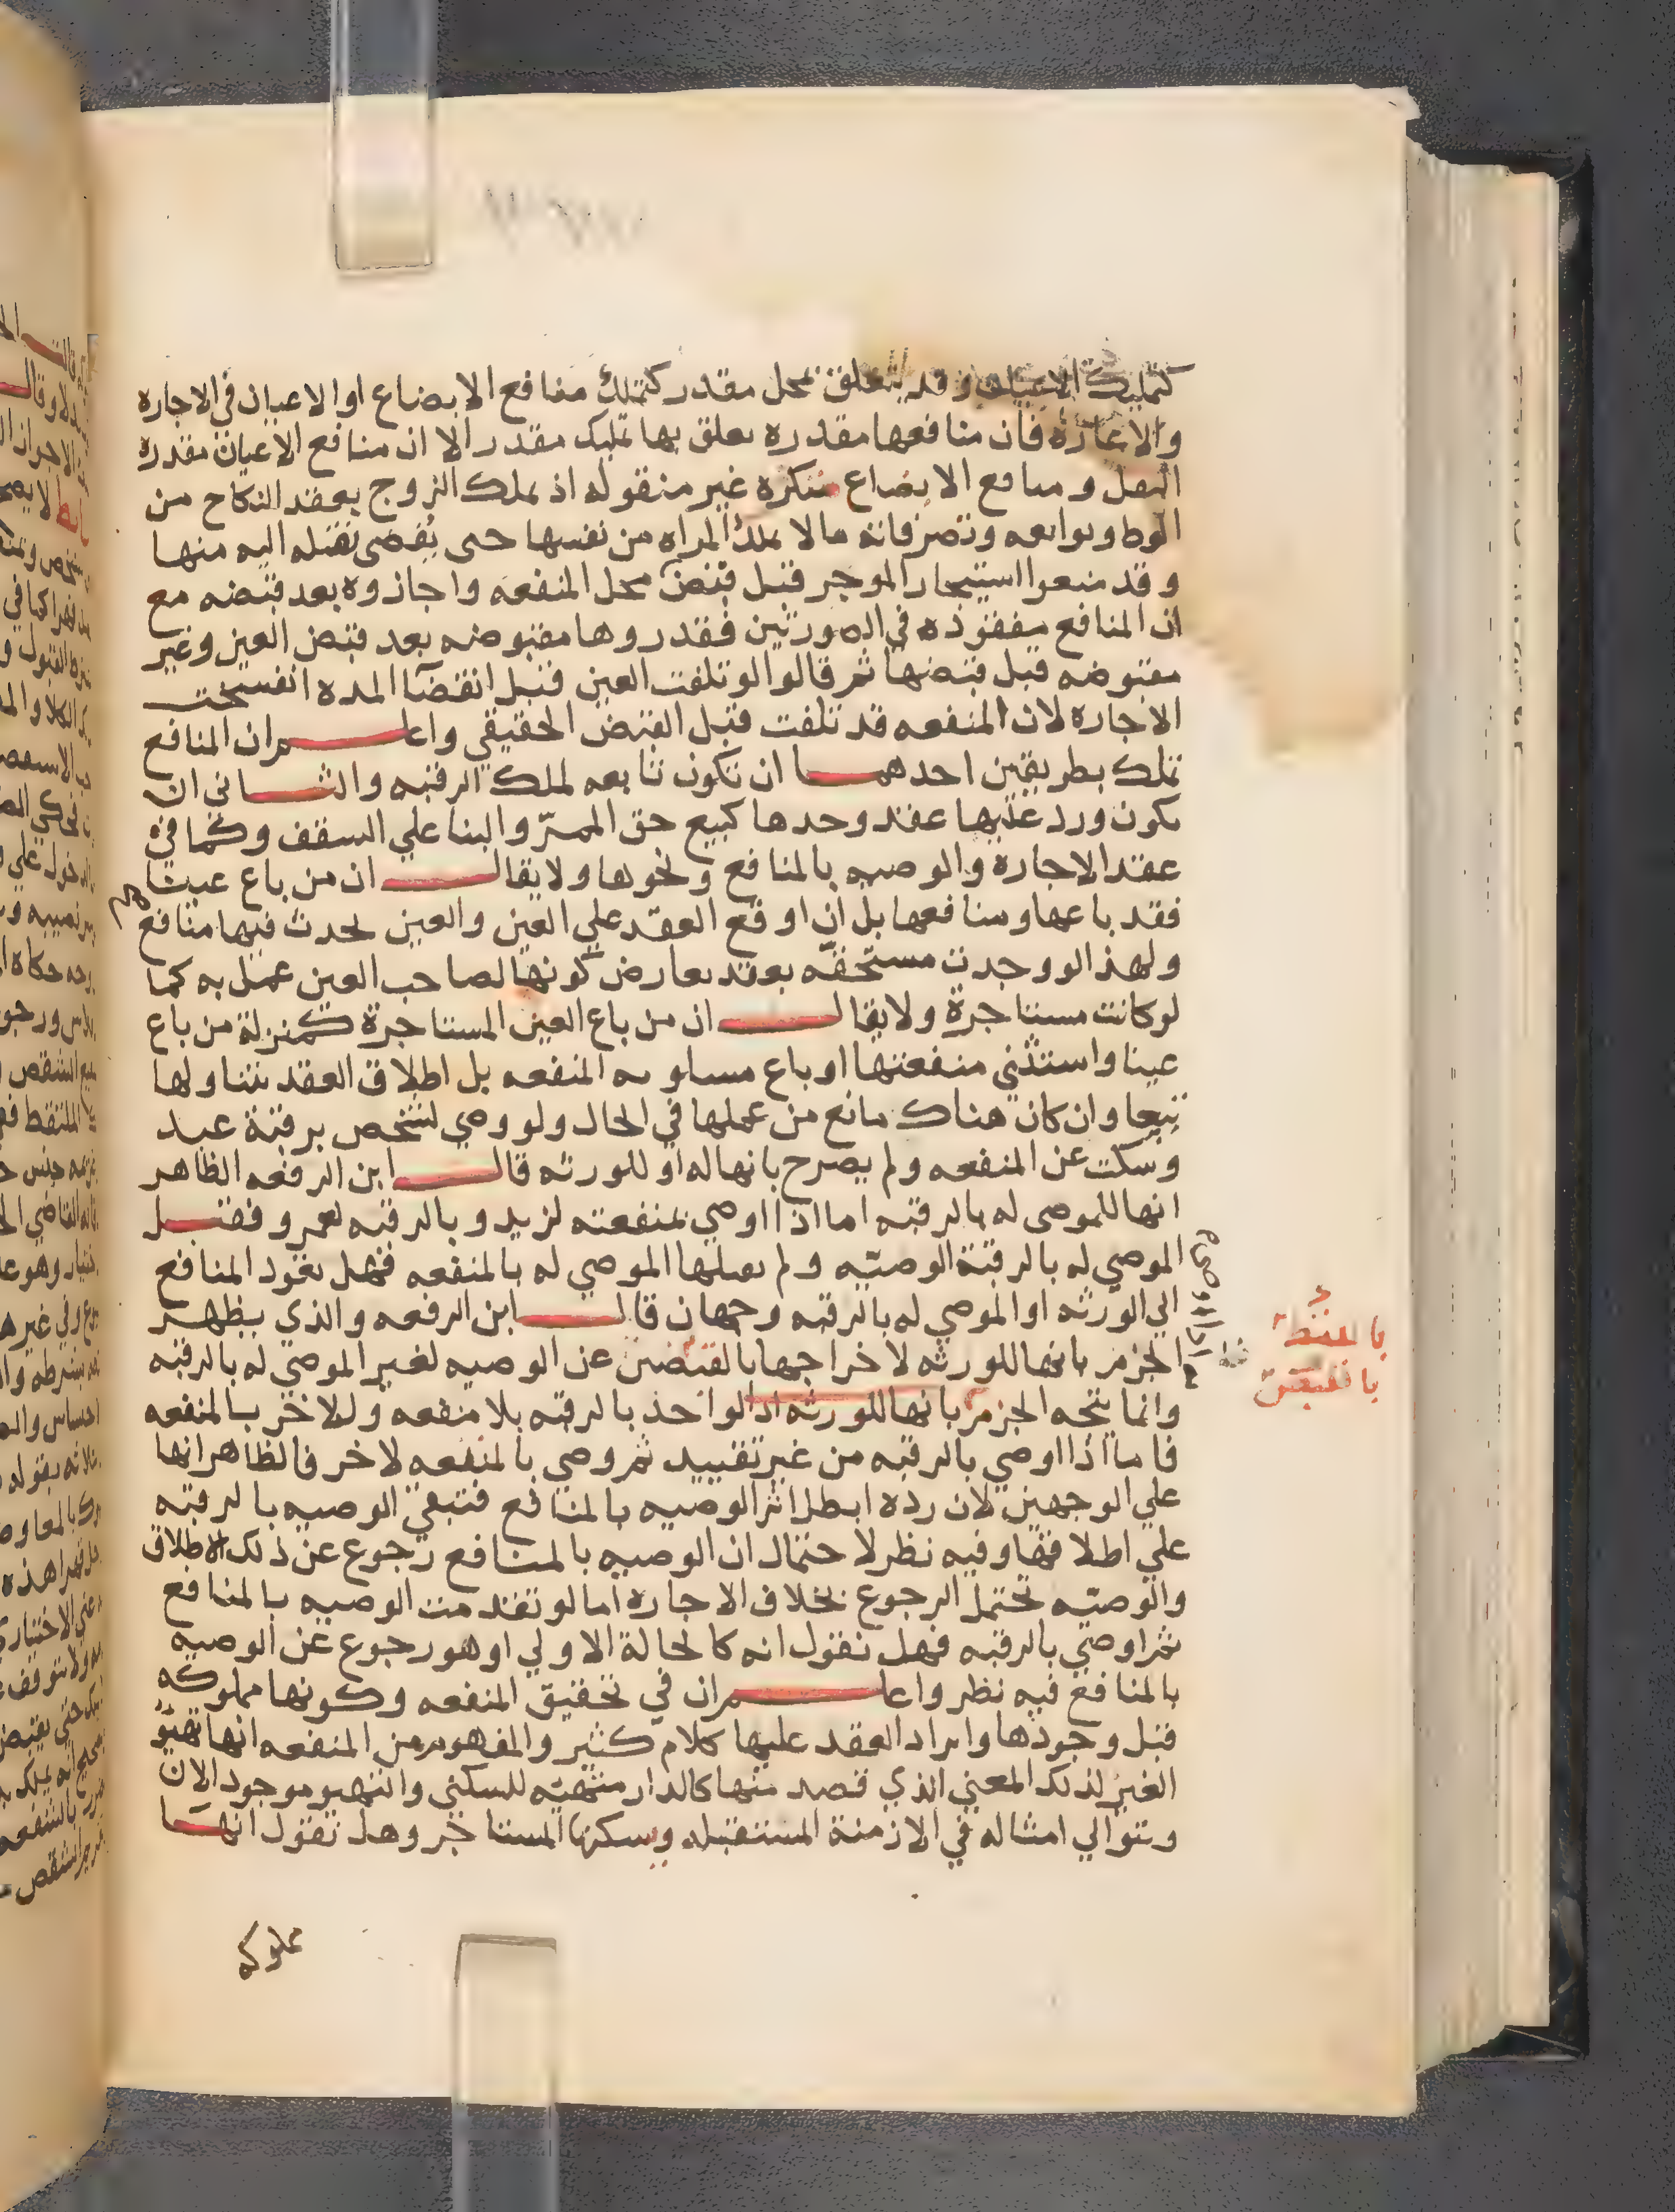 كتمليك الاعيان وقد يتعلق بمحل مقدر كتملك منافع الابضاع او الاعيان في الاجاره
والاعارة فان منافعها مقدره يعلق بها تمليك مقدر الا ان منافع الاعيان مقدره
النقل ومنافع الابضاع منكرة غير منقوله اذ يملك الزوج بعقد النكاح من
الوط وتوابعه وتصرفاته ما لا تملك المراه من نفسها حتى يقضى بنقله اليه منها
وقد منعوا استيجار الموجر قبل قبض محل المنفعه واجازوه بعد قبضه مع
ان المنافع مفقوده في الصورتين فقدروها مقبوضه بعد قبض العين وغير
مقبوضه قبل قبضها ثم قالوا لو تلفت العين قبل انقضآ المده انفسخت
الاجاره لان المنفعه قد تلفت قبل القبض الحقيقي واعلم ان المنافع
تملك بطريقين احدهما ان تكون تابعه لملك الرقبه والثاني ان
يكون ورد عليها عقد وحدها كبيع حق الممرّ والبنا علي السقف وكما في
عقد الاجاره والوصيه بالمنافع ونحوها ولا يقال ان من باع عينا
فقد باعها ومنافعها بل ان اوقع العقد علي العين والعين تحدث فيها منافع
ولهذا لو وجدت مستحقه بعقد يعارض كونها لصاحب العين عمل به كما
لو كانت مستاجرة ولا يقال ان من باع العين المستاجرة كمنزلة من باع
عينا واستثني منفعتها او باع مسلوبه المنفعه بل اطلاق العقد يتناولها
تبعا وان كان هناك مانع من عملها في الحال ولو وصي لشخص برقبة عبد
وسكت عن المنفعه ولم يصرح بانها له او للورثه قال ابن الرفعه الظاهر
انها للموصى له بالرقبه اما اذا اوصي بمنفعته لزيد وبالرقبه لعمرو فقبل
الموصي له بالرقبة الوصيّه ولم يقبلها الموصي له بالمنفعه فهل تعود المنافع
الي الورثه او الموصي له بالرقبه وجهان قال ابن الرفعه والذي يظهر
الجزم بانها للورثه لاخراجها بالقبض عن الوصيه لغير الموصي له بالرقبه
وانما يتجه الجزم بانها للورثه اذا الواحد بالرقبه بلا منفعه وللاخر بالمنفعه
فاما اذا اوصي بالرقبه من غير تقييد ثم وصي بالمنفعه لاخر فالظاهر انها
علي الوجهين لان رده ابطل اثر الوصيه بالمنافع فتبقي الوصيه بالرقبه
علي اطلاقها وفيه نظر لاحتمال ان الوصيه بالمنافع رجوع عن ذلك الاطلاق
والوصيّه تحتمل الرجوع بخلاف الاجاره اما لو تقدمت الوصيه بالمنافع
ثم اوصي بالرقبه فهل نقول انه كالحالة الاولي او هو رجوع عن الوصيه
بالمنافع فيه نظر واعلم ان في تحقيق المنفعه وكونها مملوكه
قبل وجودها وايراد العقد عليها كلام كثير والمفهوم من المنفعه انها تهيّؤ
العين لذلك المعني الذي قصد منها كالدار متهيّه للسكني والتهيو موجود الان
وتتوالي امثاله في الازمنة المستقبله ويسكنها المستاجر وهل نقول انها
مملوكه